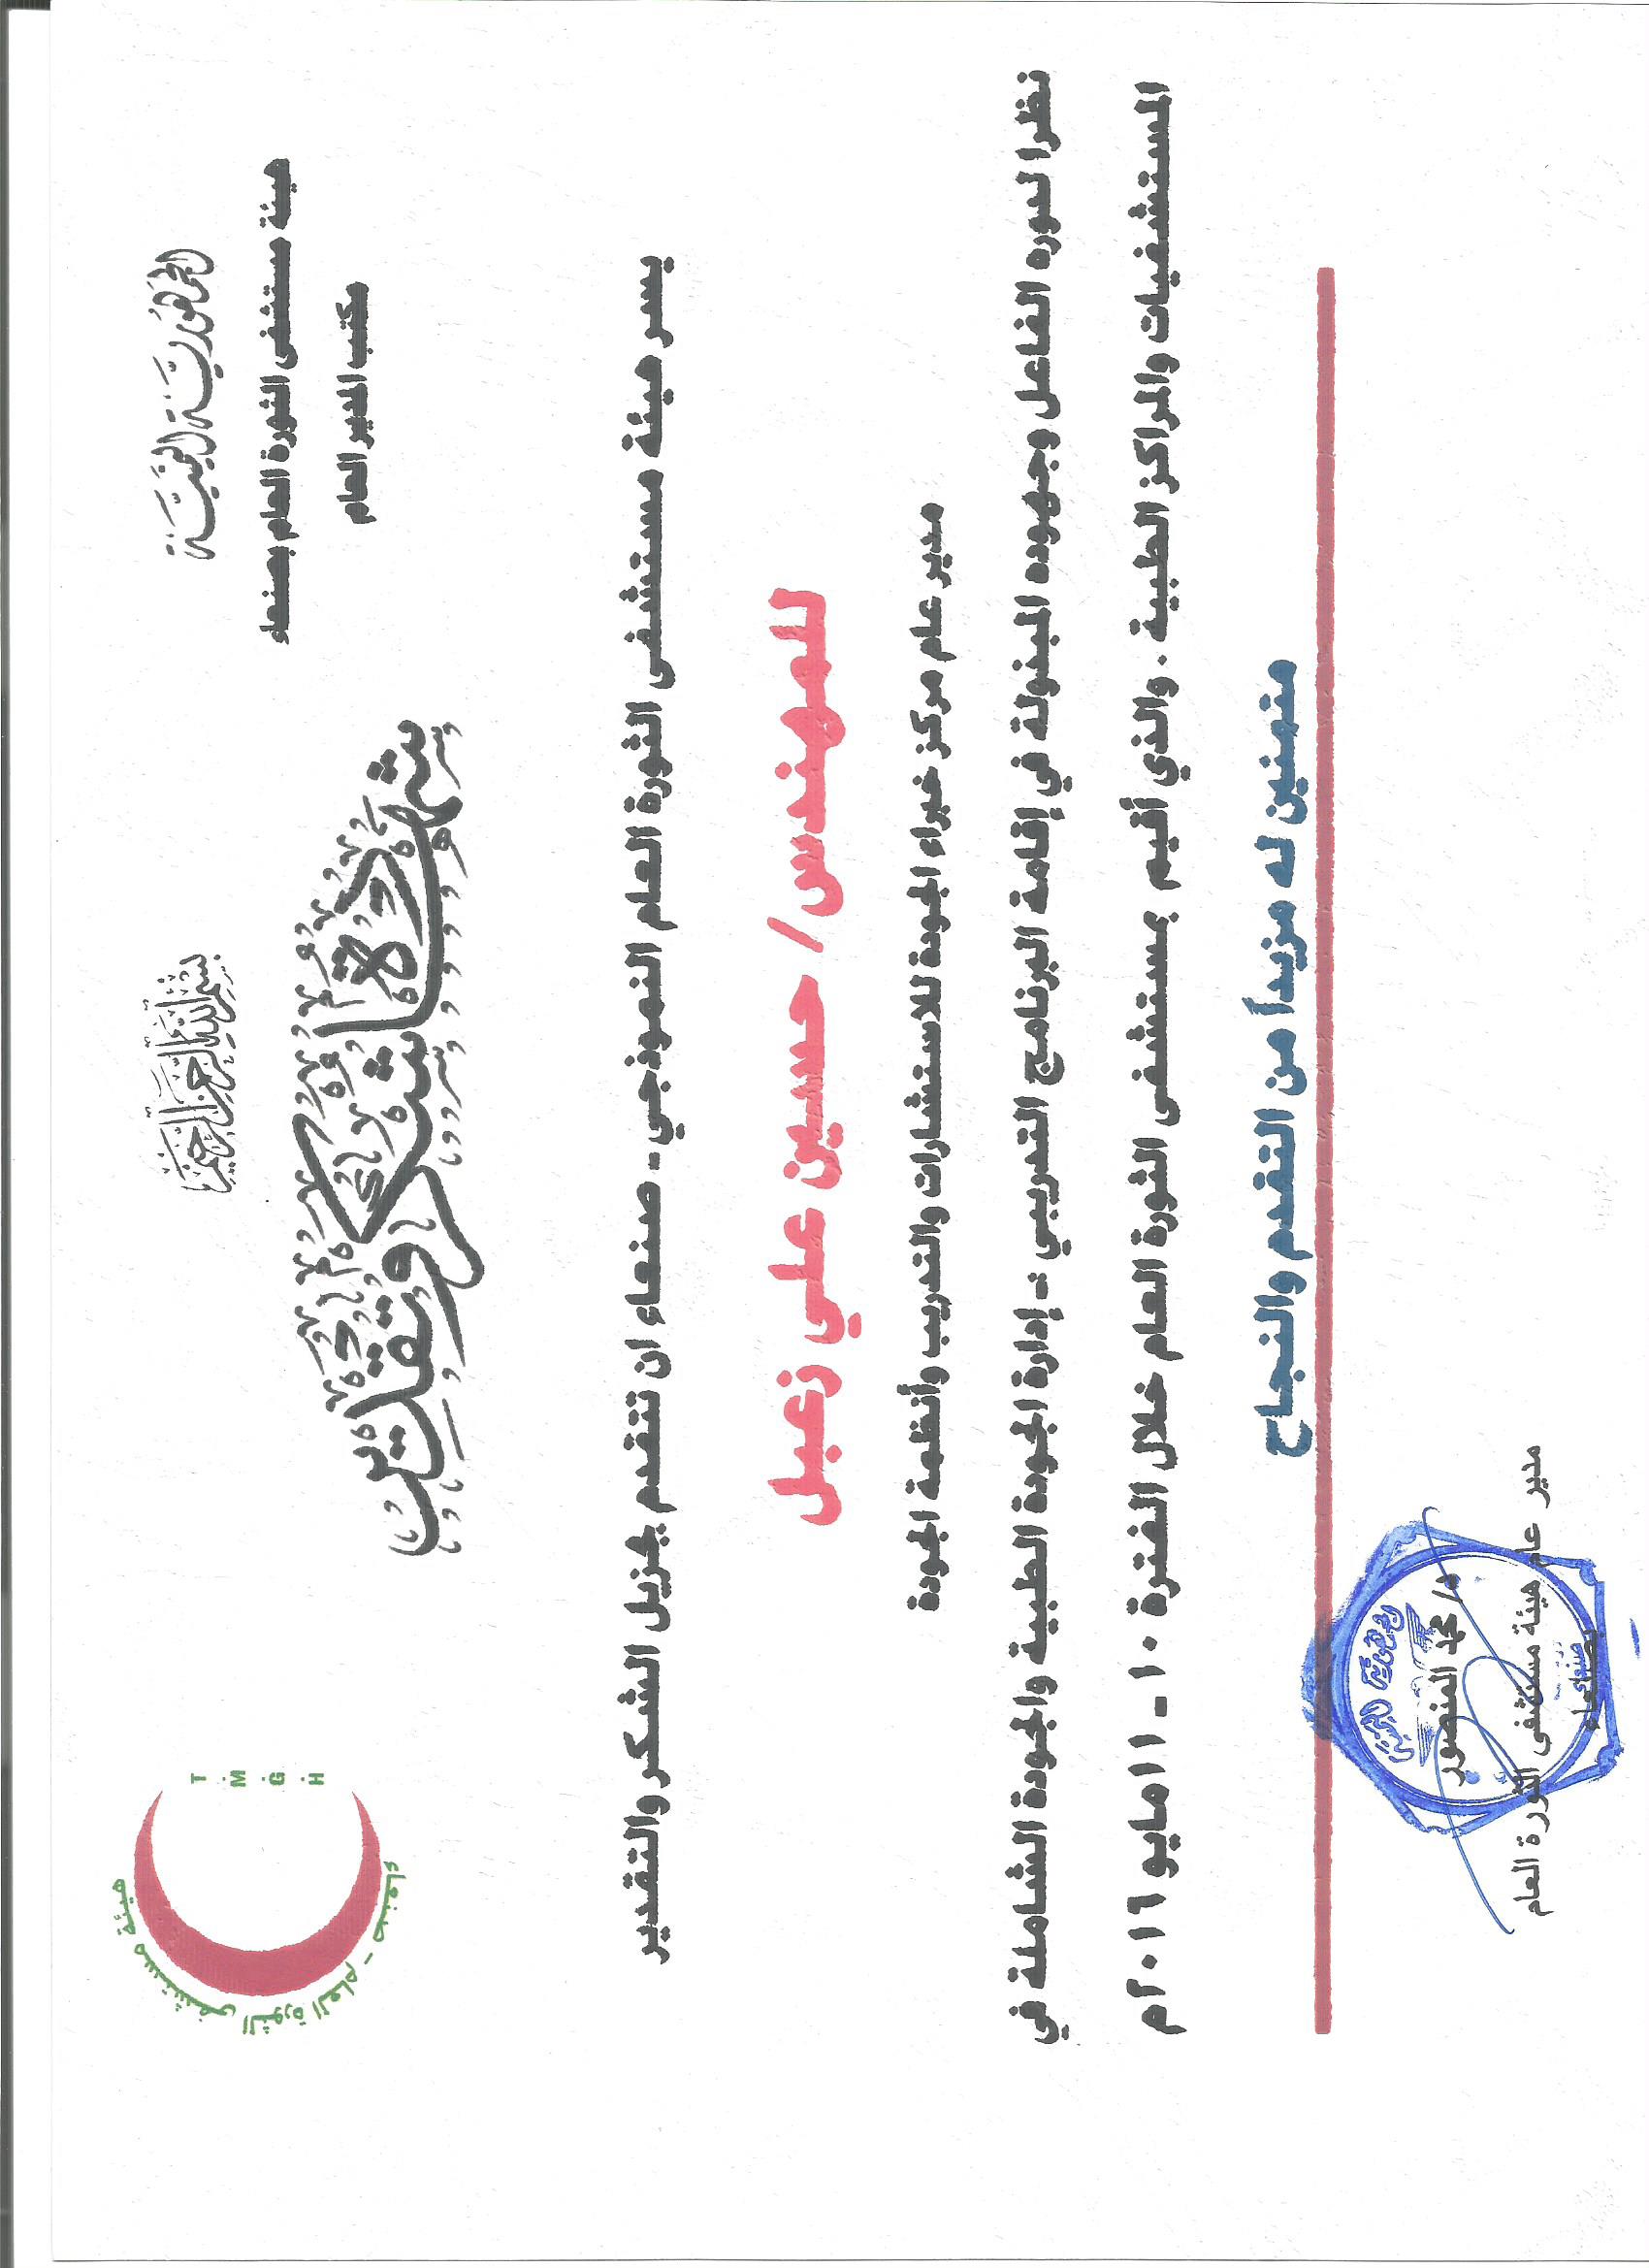 بسم الله الرحمن الرحيم
الجمهورية اليمنية
هيئة مستشفى الثورة العام بصنعاء
مكتب المدير العام
T.M.G.H
هيئة مستشفى الثورة العام - صنعاء
شهادة شكر وتقدير
يسر هيئة مستشفى الثورة العام النموذجي - صنعاء ان تتقدم بجزيل الشكر والتقدير
للمهندس/ حسين علي زعبل
مدير عام مركز خبراء الجودة للاستشارات والتدريب وأنظمة الجودة
نظرا لدوره الفاعل وجهوده المبذولة في إقامة البرنامج التدريبي - إدارة الجودة الطبية والجودة الشاملة في
المستشفيات والمراكز الطبية . والذي أقيم بمستشفى الثورة العام خلال الفترة ١٠ - ١١مايو ٢٠١٦م
متمنين له مزيداً من التقدم والنجاح
د/ محمد المنصور
مدير عام هيئة مستشفى الثورة العام
بصنعاء
الجمهورية اليمنية